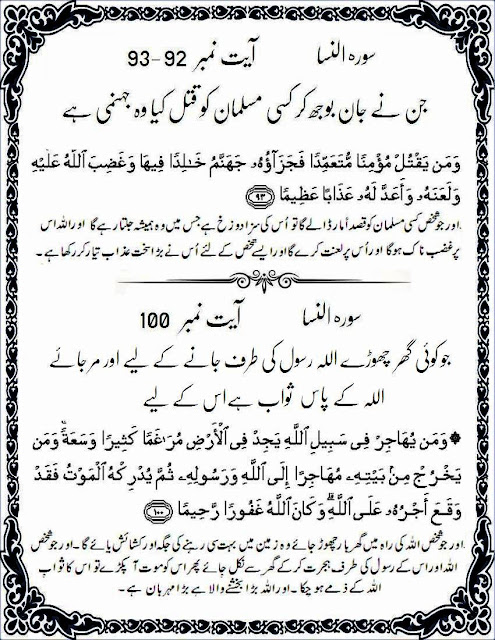 سورہ النسا آیت نمبر 92-93
جن نے جان بوجھ کر کسی مسلمان کو قتل کیا وہ جہنمی ہے
وَمَن يَقْتُلْ مُؤْمِنًا مُّتَعَمِّدًا فَجَزَآؤُهُۥ جَهَنَّمُ خَـٰلِدًا فِيهَا وَغَضِبَ ٱللَّهُ عَلَيْهِ
وَلَعَنَهُۥ وَأَعَدَّ لَهُۥ عَذَابًا عَظِيمًا ﴿٩٣﴾
اور جو شخص کسی مسلمان کو قصداً مار ڈالے گا تو اُس کی سزا دوزخ ہے جس میں وہ ہمیشہ جلتا رہے گا اور اللہ اس
پر غضب ناک ہوگا اور اُس پر لعنت کرے گا اور ایسے شخص کے لئے اُس نے بڑا سخت عذاب تیار کر رکھا ہے۔
سورہ النسا آیت نمبر 100
جو کوئی گھر چھوڑے اللہ رسول کی طرف جانے کے لیے اور مر جائے
اللہ کے پاس ثواب ہے اس کے لیے
۞ وَمَن يُهَاجِرْ فِى سَبِيلِ ٱللَّهِ يَجِدْ فِى ٱلْأَرْضِ مُرَٰغَمًا كَثِيرًا وَسَعَةً ۚ وَمَن
يَخْرُجْ مِنۢ بَيْتِهِۦ مُهَاجِرًا إِلَى ٱللَّهِ وَرَسُولِهِۦ ثُمَّ يُدْرِكْهُ ٱلْمَوْتُ فَقَدْ
وَقَعَ أَجْرُهُۥ عَلَى ٱللَّهِ ۗ وَكَانَ ٱللَّهُ غَفُورًا رَّحِيمًا ﴿١٠٠﴾
اور جو شخص اللہ کی راہ میں گھر بار چھوڑ جائے وہ زمین میں بہت سی رہنے کی جگہ اور کشائش پائے گا۔ اور جو شخص
اللہ اور اس کے رسول کی طرف ہجرت کر کے گھر سے نکل جائے پھر اس کو موت آ پکڑے تو اس کا ثواب
اللہ کے ذمے ہو چکا۔ اور اللہ بڑا بخشنے والا ہے بڑا مہربان ہے۔